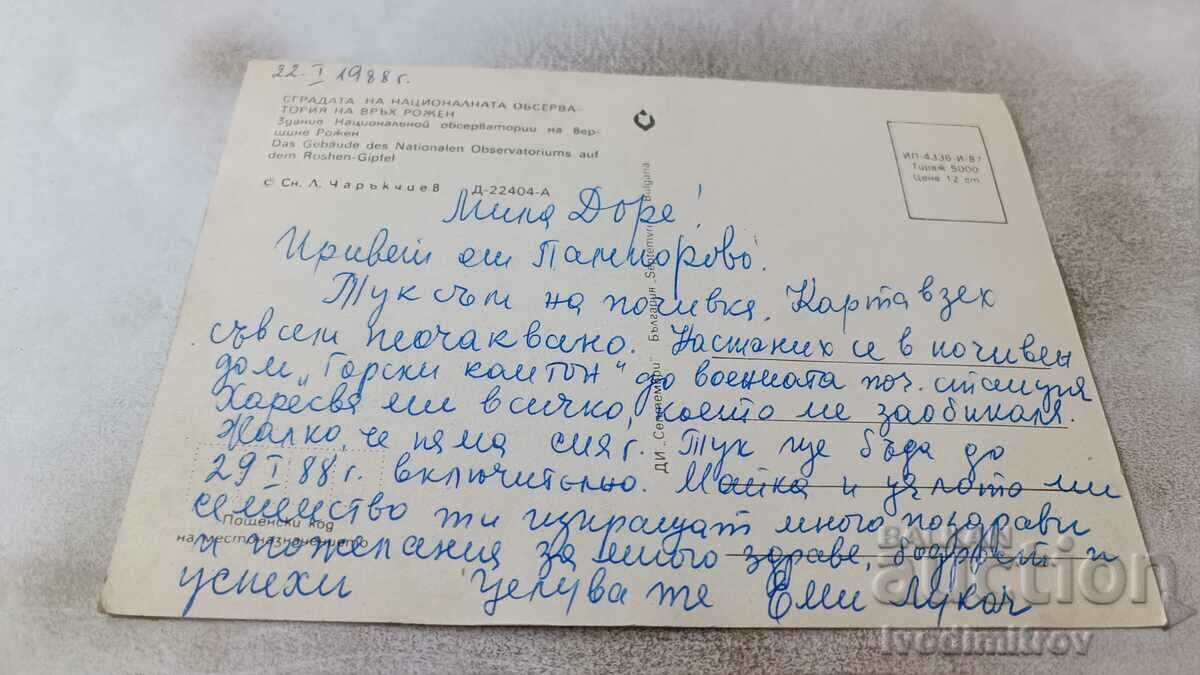 22.I 1988 г.
СГРАДАТА НА НАЦИОНАЛНАТА ОБСЕРВА-
ТОРИЯ НА ВРЪХ РОЖЕН
Здание Национальной обсерватории на вер-
шине Рожен
Das Gebäude des Nationalen Observatoriums auf
dem Roshen-Gipfel
с Сн. Л. Чаръкчиев Д-22404-А
ИП-4336-И-87
Тираж 5000
Цена 12 ст.
ДИ „Септември" България "Septemvri" Bulgaria
Мила Доре!
Привет от Пампорово.
Тук съм на почивка. Карта взех
съвсем неочаквано. Настаних се в почивен
дом „Горски кантон" до военната поч. станция
Харесва ми всичко, което ме заобикаля.
Жалко, че няма сняг. Тук ще бъда до
29 I 88 г. включително. Майка и цялото ми
семейство ти изпращат много поздрави
Пощенски код
на местоназначението
и пожелания за много здраве, бодрост и
успехи Целува те Еми
БАЛКАН
auction
Ivodimitrov